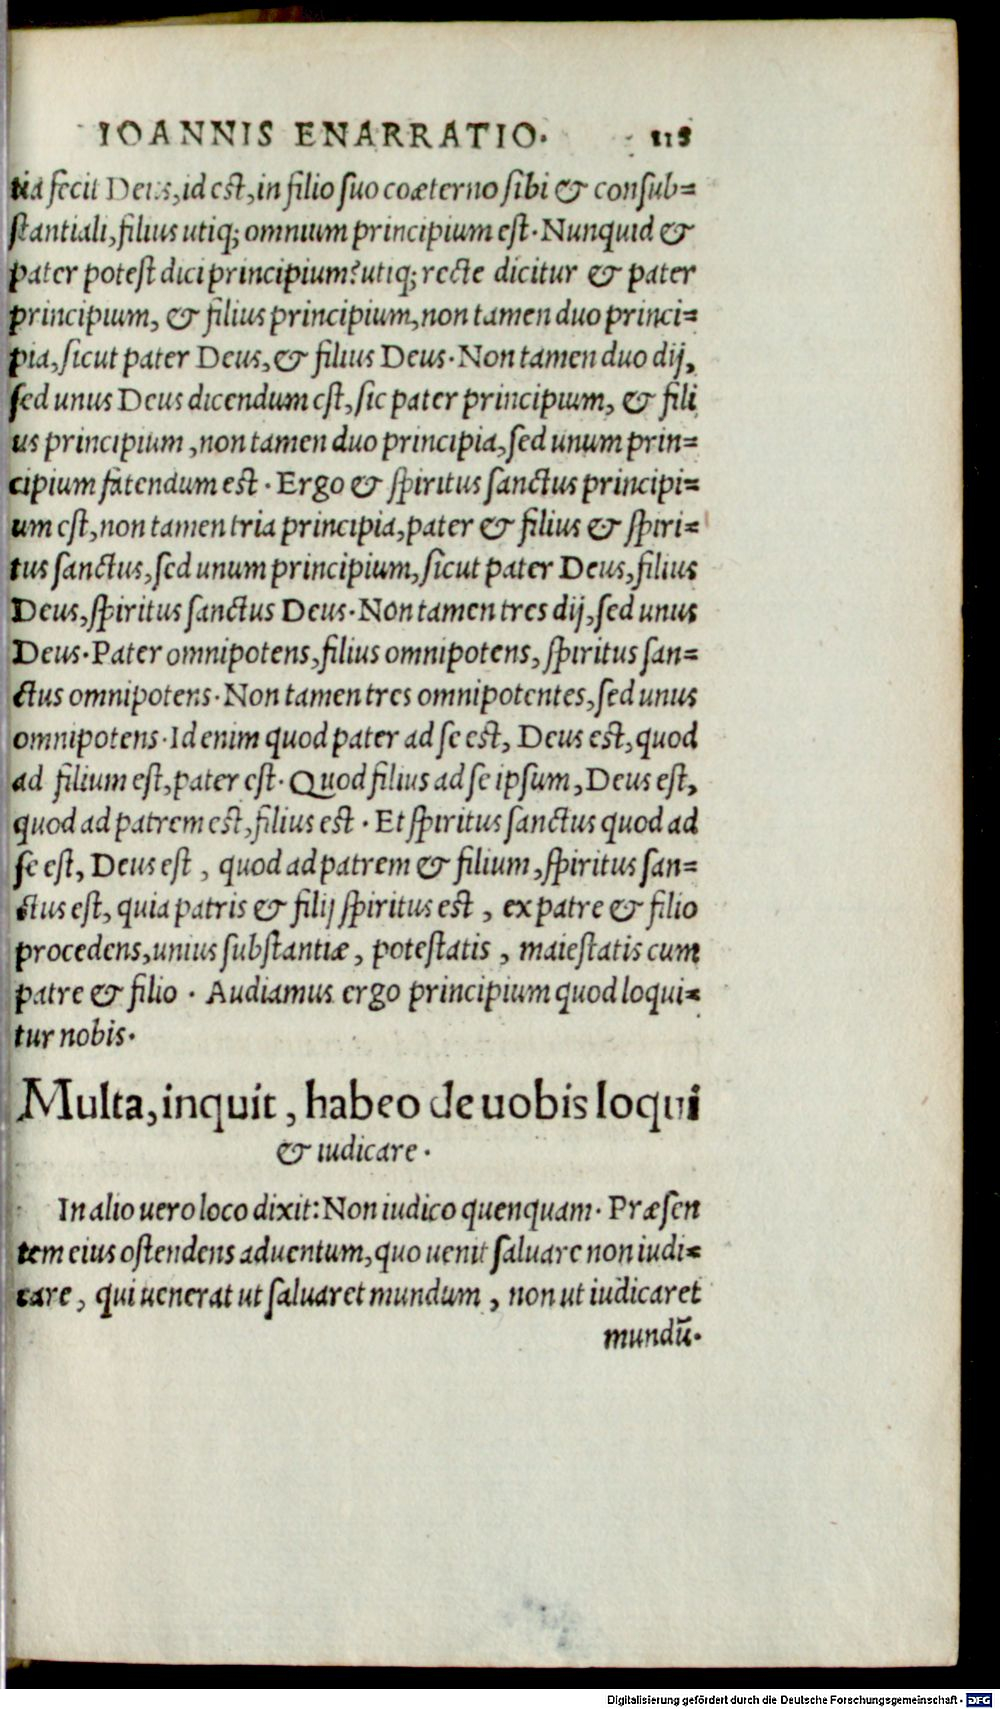 IOANNIS ENARRATIO. 118
tia fecit Deus, id est, in filio suo coæterno sibi & consub=
stantiali, filius utiq; omnium principium est. Nunquid &
pater potest dici principium? utiq; recte dicitur & pater
principium, & filius principium, non tamen duo princi=
pia, sicut pater Deus, & filius Deus. Non tamen duo dij,
sed unus Deus dicendum est, sic pater principium, & fili
us principium, non tamen duo principia, sed unum prin=
cipium fatendum est. Ergo & spiritus sanctus principi=
um est, non tamen tria principia, pater & filius & spiri=
tus sanctus, sed unum principium, sicut pater Deus, filius
Deus, spiritus sanctus Deus. Non tamen tres dij, sed unus
Deus. Pater omnipotens, filius omnipotens, spiritus san=
ctus omnipotens. Non tamen tres omnipotentes, sed unus
omnipotens. Id enim quod pater ad se est, Deus est, quod
ad filium est, pater est. Quod filius ad se ipsum, Deus est,
quod ad patrem est, filius est. Et spiritus sanctus quod ad
se est, Deus est, quod ad patrem & filium, spiritus san=
ctus est, quia patris & filij spiritus est, ex patre & filio
procedens, unius substantiæ, potestatis, maiestatis cum
patre & filio. Audiamus ergo principium quod loqui=
tur nobis.
Multa, inquit, habeo de uobis loqui
& iudicare.
In alio uero loco dixit: Non iudico quenquam. Præsen
tem eius ostendens aduentum, quo uenit saluare non iudi=
care, qui uenerat ut saluaret mundum, non ut iudicaret
mundū.
Digitalisierung gefördert durch die Deutsche Forschungsgemeinschaft - DFG